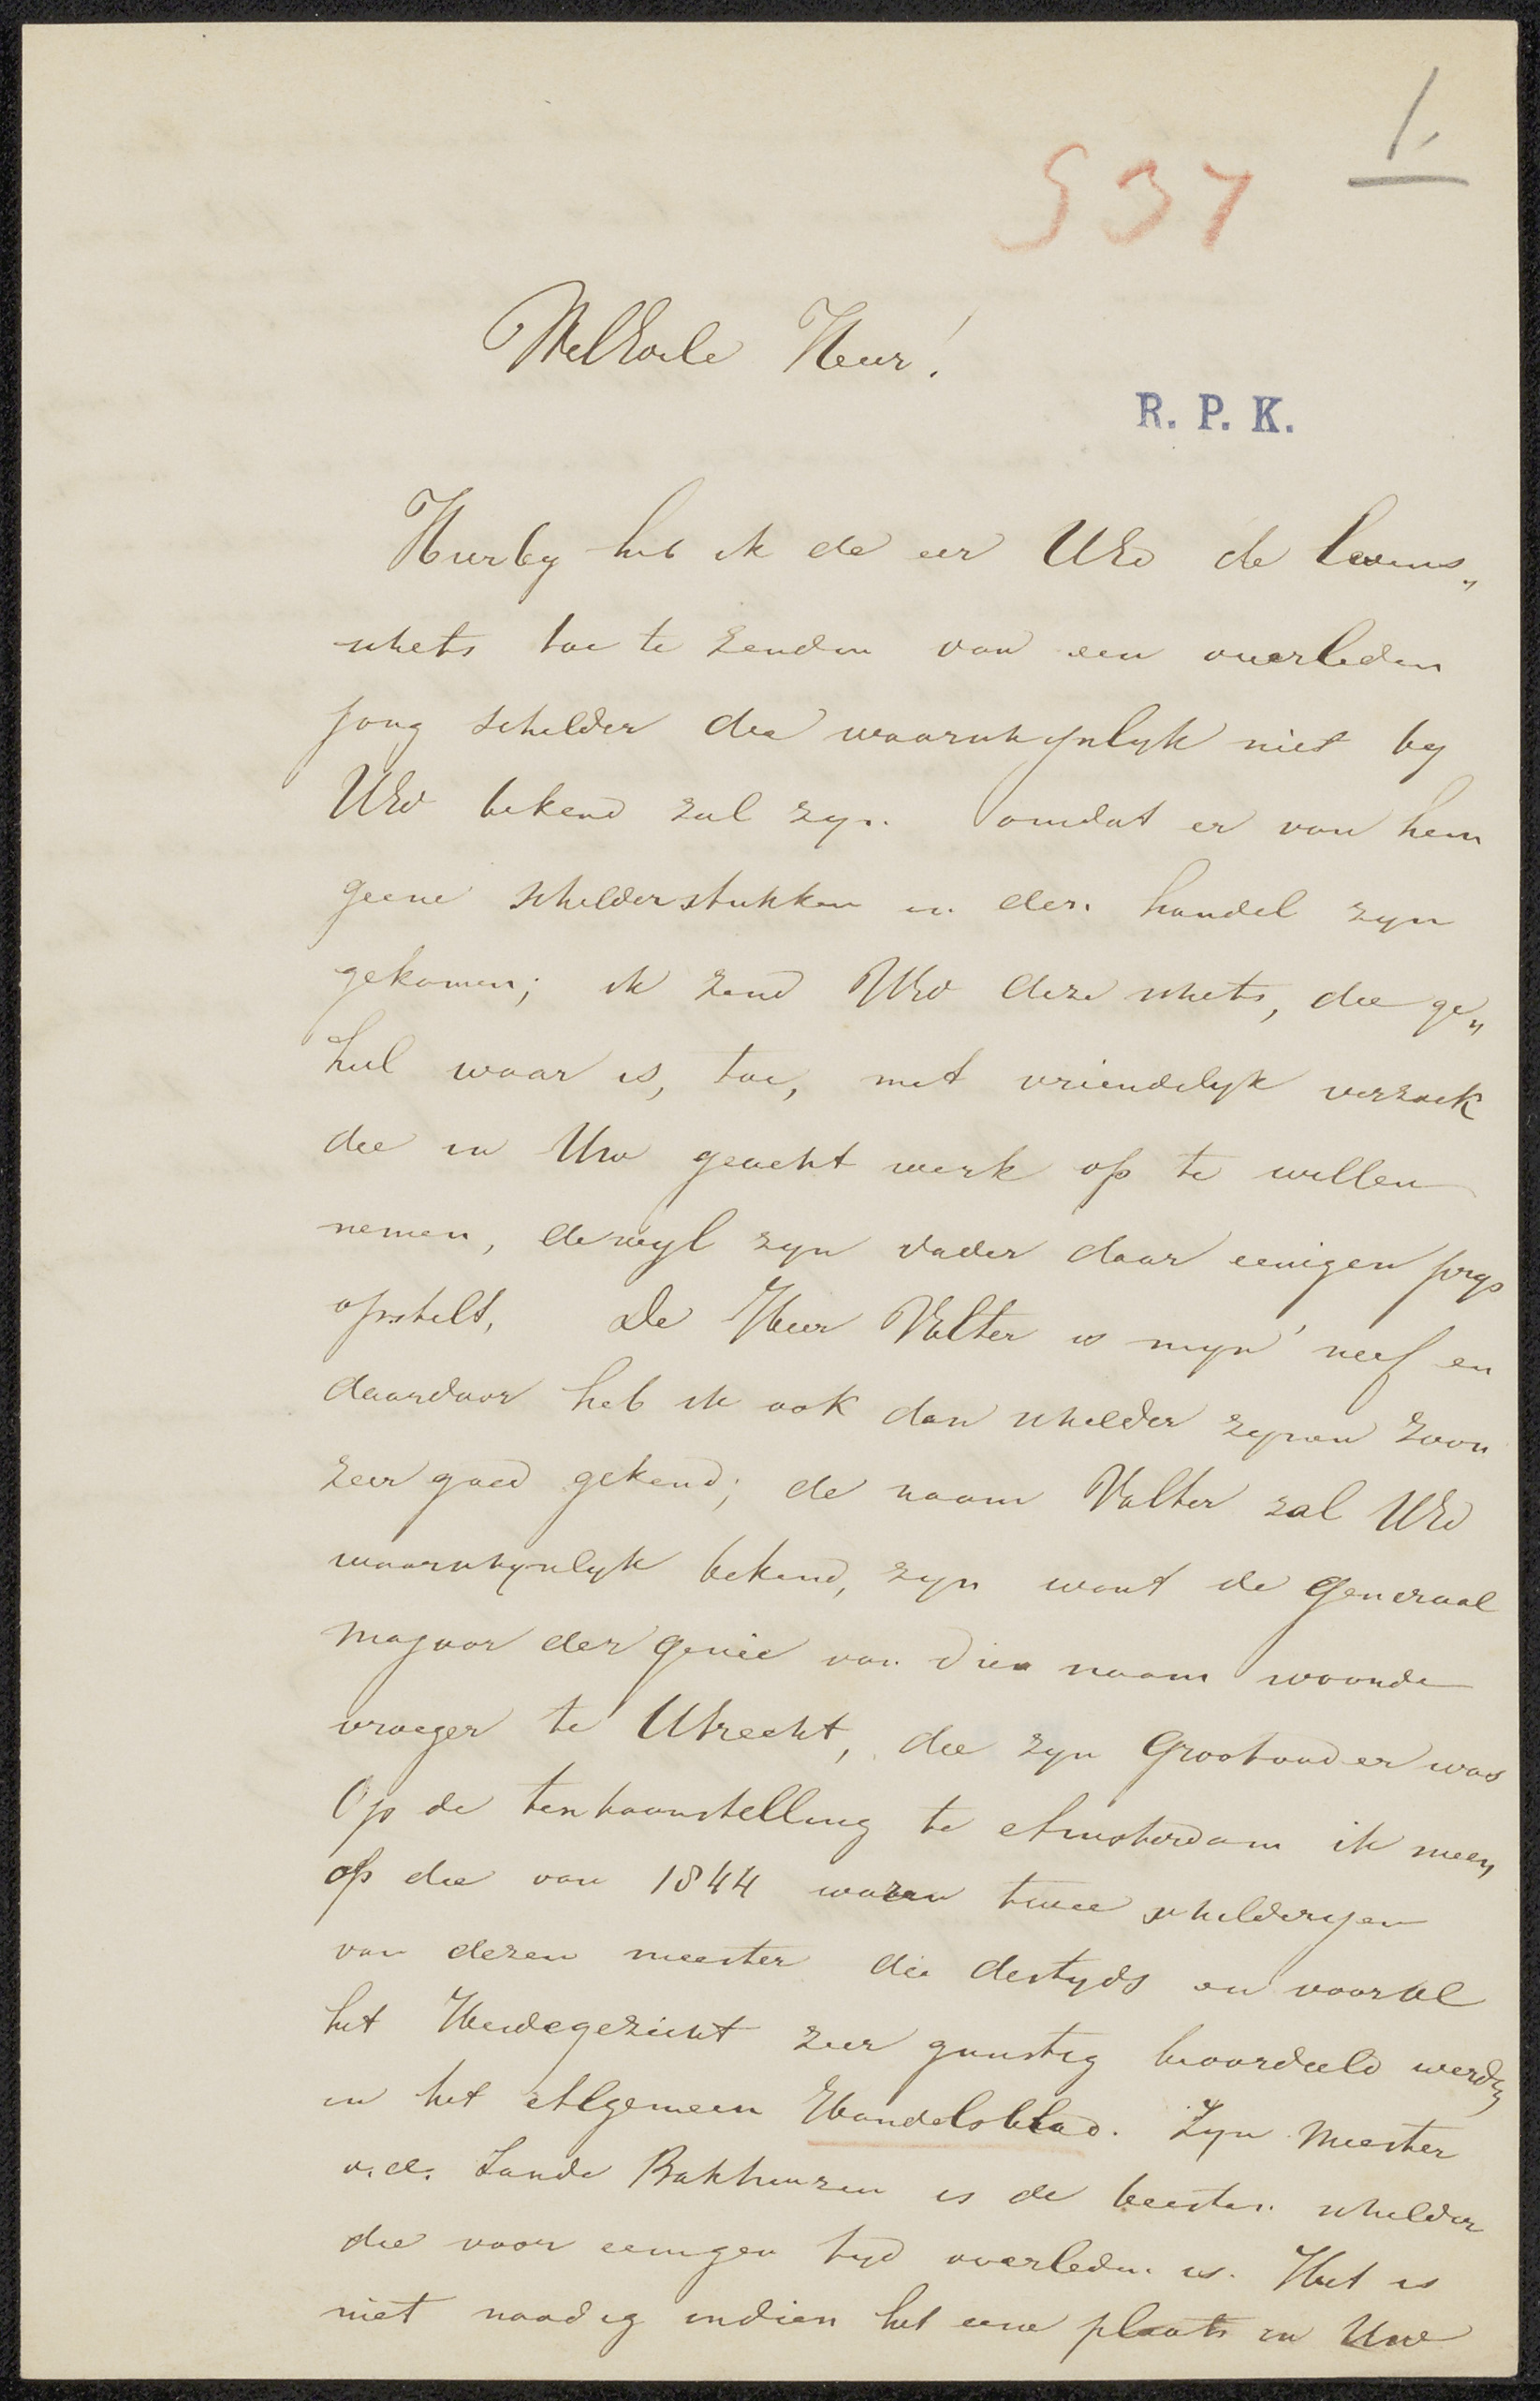 1.
537
WelEdele Heer!
R. P. K.
Hierby heb ik de eer UEd de levens„
schets toe te zenden van een overleden
jong schilder die waarschynlyk niet by
UEd bekend zal zyn. omdat er van hem
geene schilderstukken in den handel zyn
gekomen; ik zend UEd deze schets, die ge„
heel waar is, toe, met vriendelyk verzoek
die in Uw geacht werk op te willen
nemen, dewyl zyn vader daar eenigen prys
opstelt, De Heer Valter is myn neef en
daardoor heb ik ook den schilder zynen zoon
zeer goed gekend; de naam Valter zal UEd
waarschynlyk bekend, zyn want de Generaal
majoor der genie van dien naam woonde
vroeger te Utrecht, die zyn Grootvader was
Op de tentoonstelling te Amsterdam ik meen
op die van 1844 waren twee schilderyen
van dezen meester die destyds en vooral
het Heidegezicht zeer gunstig beoordeeld werden
in het Algemeen Handelsblad. Zyn Meester
v.d. Sande Bakhuizen is de beesten schilder
die voor eenigen tyd overleden is. Het is
niet noodig indien het eene plaats in Uw